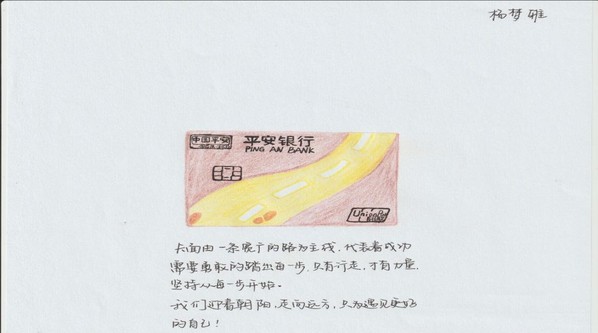 杨梦雅
中国平安
平安银行
PING AN BANK
UnionPay
卡面由一条宽广的路为主线,代表着成功
需要勇敢的踏出每一步,只有行走,才有力量,
坚持从每一步开始。
我们迎着朝阳,走向远方,只为遇见更好
的自己!